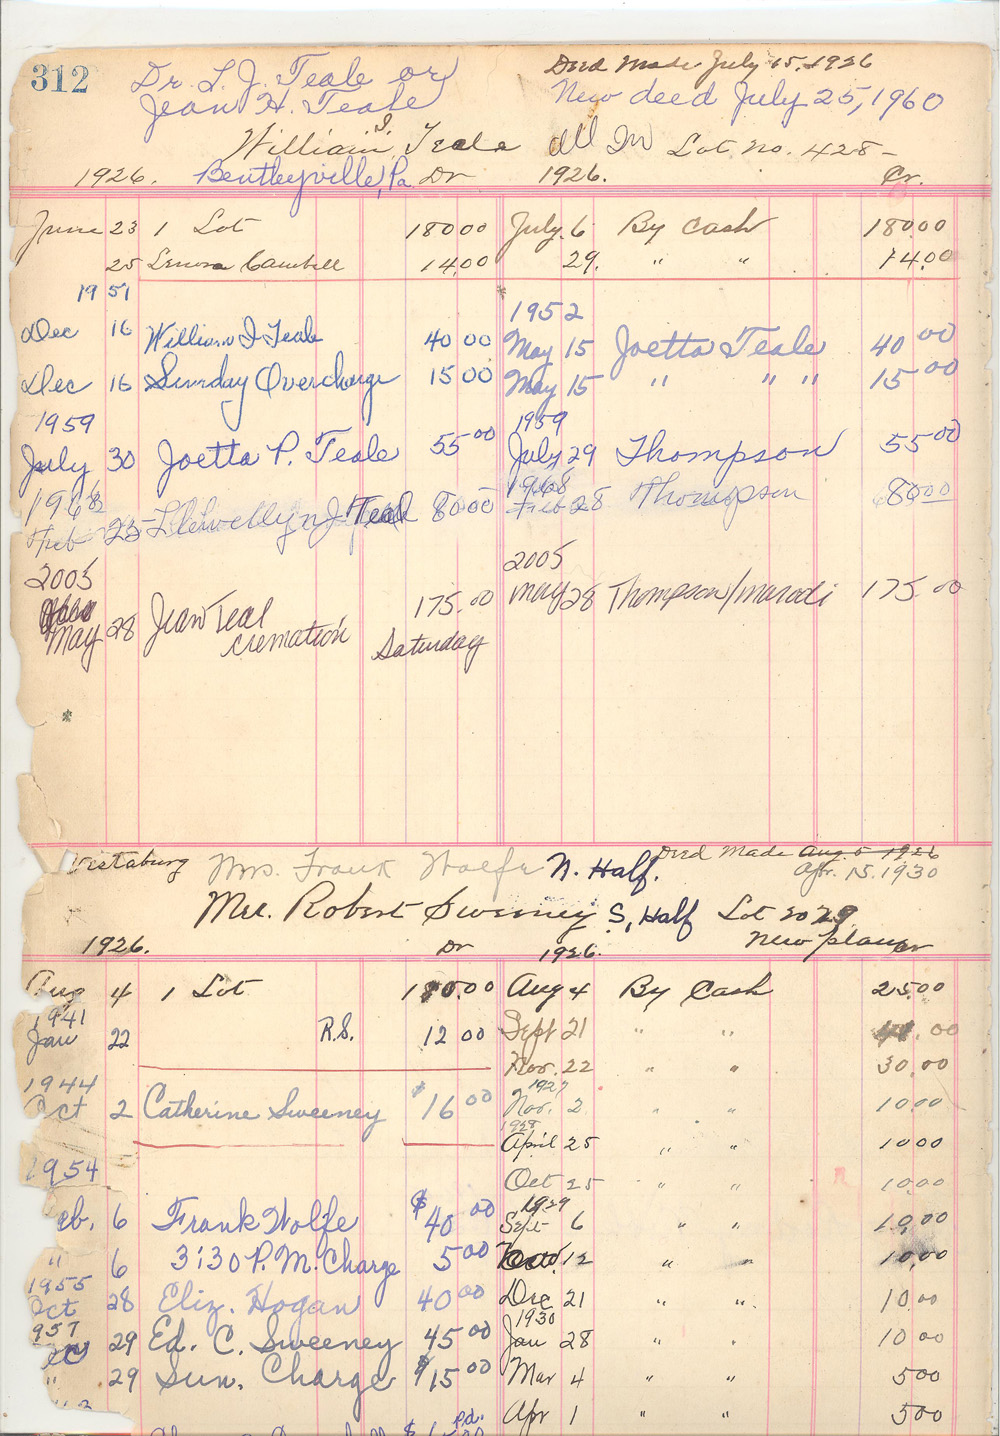 312 Dr. L. J. Teale or Deed Made July 15, 1926
Jean H. Teale New deed July 25, 1960
William I. Teale Lot No. 428-
1926. Bentleyville, Pa. Dr 1926. Cr.
June 23 1 Lot 180 00 July 6 By Cash 180.00
25 Lenora Cambell 14.00 29. " " 14.00
19 51
1952
Dec 16 William I Teale 40 00 May 15 Joetta Teale 40 00
Dec 16 Sunday Overcharge 15 00 May 15 " " " 15 00
1959 1959
July 30 Joetta P. Teale 55 00 July 29 Thompson 55 00
1968 1968
Feb 23 Llewellyn J Teal 80 00 Feb 28 Thompson 80 00
2005 2005
May 28 Jean Teal 175.00 May 28 Thompson/Marodi 175.00
cremation Saturday
*
Vestaburg Mrs. Frank Wolfe N. Half. Deed Made Aug. 5 1926
Apr. 15. 1930
Mrs. Robert Sweeney S. Half Lot No 29
New plan
1926. Dr 1926. Cr
Aug 4 1 Lot 180.00 Aug 4 By Cash 25.00
1941
Jan 22 R.S. 12 00 Sept 21 " "
Nov. 22 " " 30.00
1944 1927
Oct 2 Catherine Sweeney $16 00 Nov. 2 " " 10 00
1928
April 25 " " 10 00
1954 Oct 25 " " 10.00
1929
eb. 6 Frank Wolfe $40 00 Sept 6 " " 10,00
" 6 3:30 P.M. Charge 5 00 12 " " 10,00
1955
Oct 28 Eliz. Hogan 40 00 Dec 21 " " 10.00
957 1930
29 Ed. C. Sweeney 45 00 Jan 28 " " 10 00
" 29 Sun. Charge $15 00 Mar 4 " " 5 00
Apr 1 " " 5 00
pd.